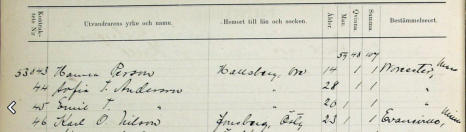 Kontrakt-
tets Nr
Utvandrarens yrke och namn.
Hemort till län och socken.
Ålder.
Man.
Qvinna
Summa
Bestämmelseort.
59 48 107
53043 Hanna Person Hallsberg, Ore 14 1 1 Worcester, Mass
44 Sofia T. Anderson " 28 1 1 "
45 Emil T. " " 20 1 1 "
46 Karl O. Nilson Östg 23 1 1